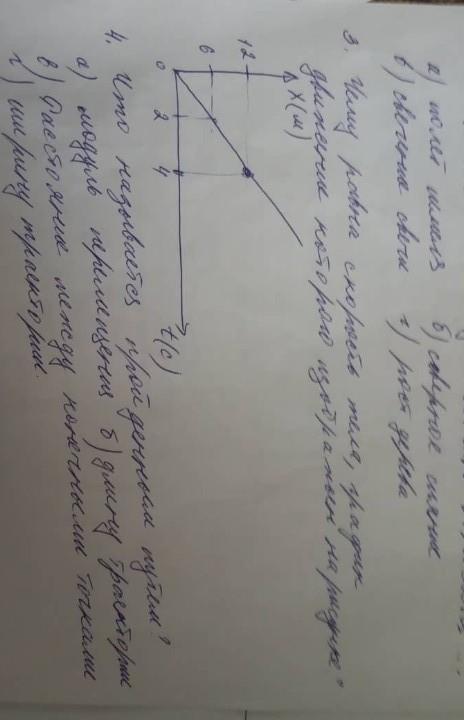 а) полёт шмеля б) северное сияние
в) свечение свечи г) рост дерева
3. Чему равна скорость тела, график
движения которого изображен на рисунке?
x(м)
12
6
0 2 4 t(c)
4. Что называется пройденным путем?
а) модуль перемещения б) длину траектории
в) Расстояние между конечными точками
г) ширину траектории.